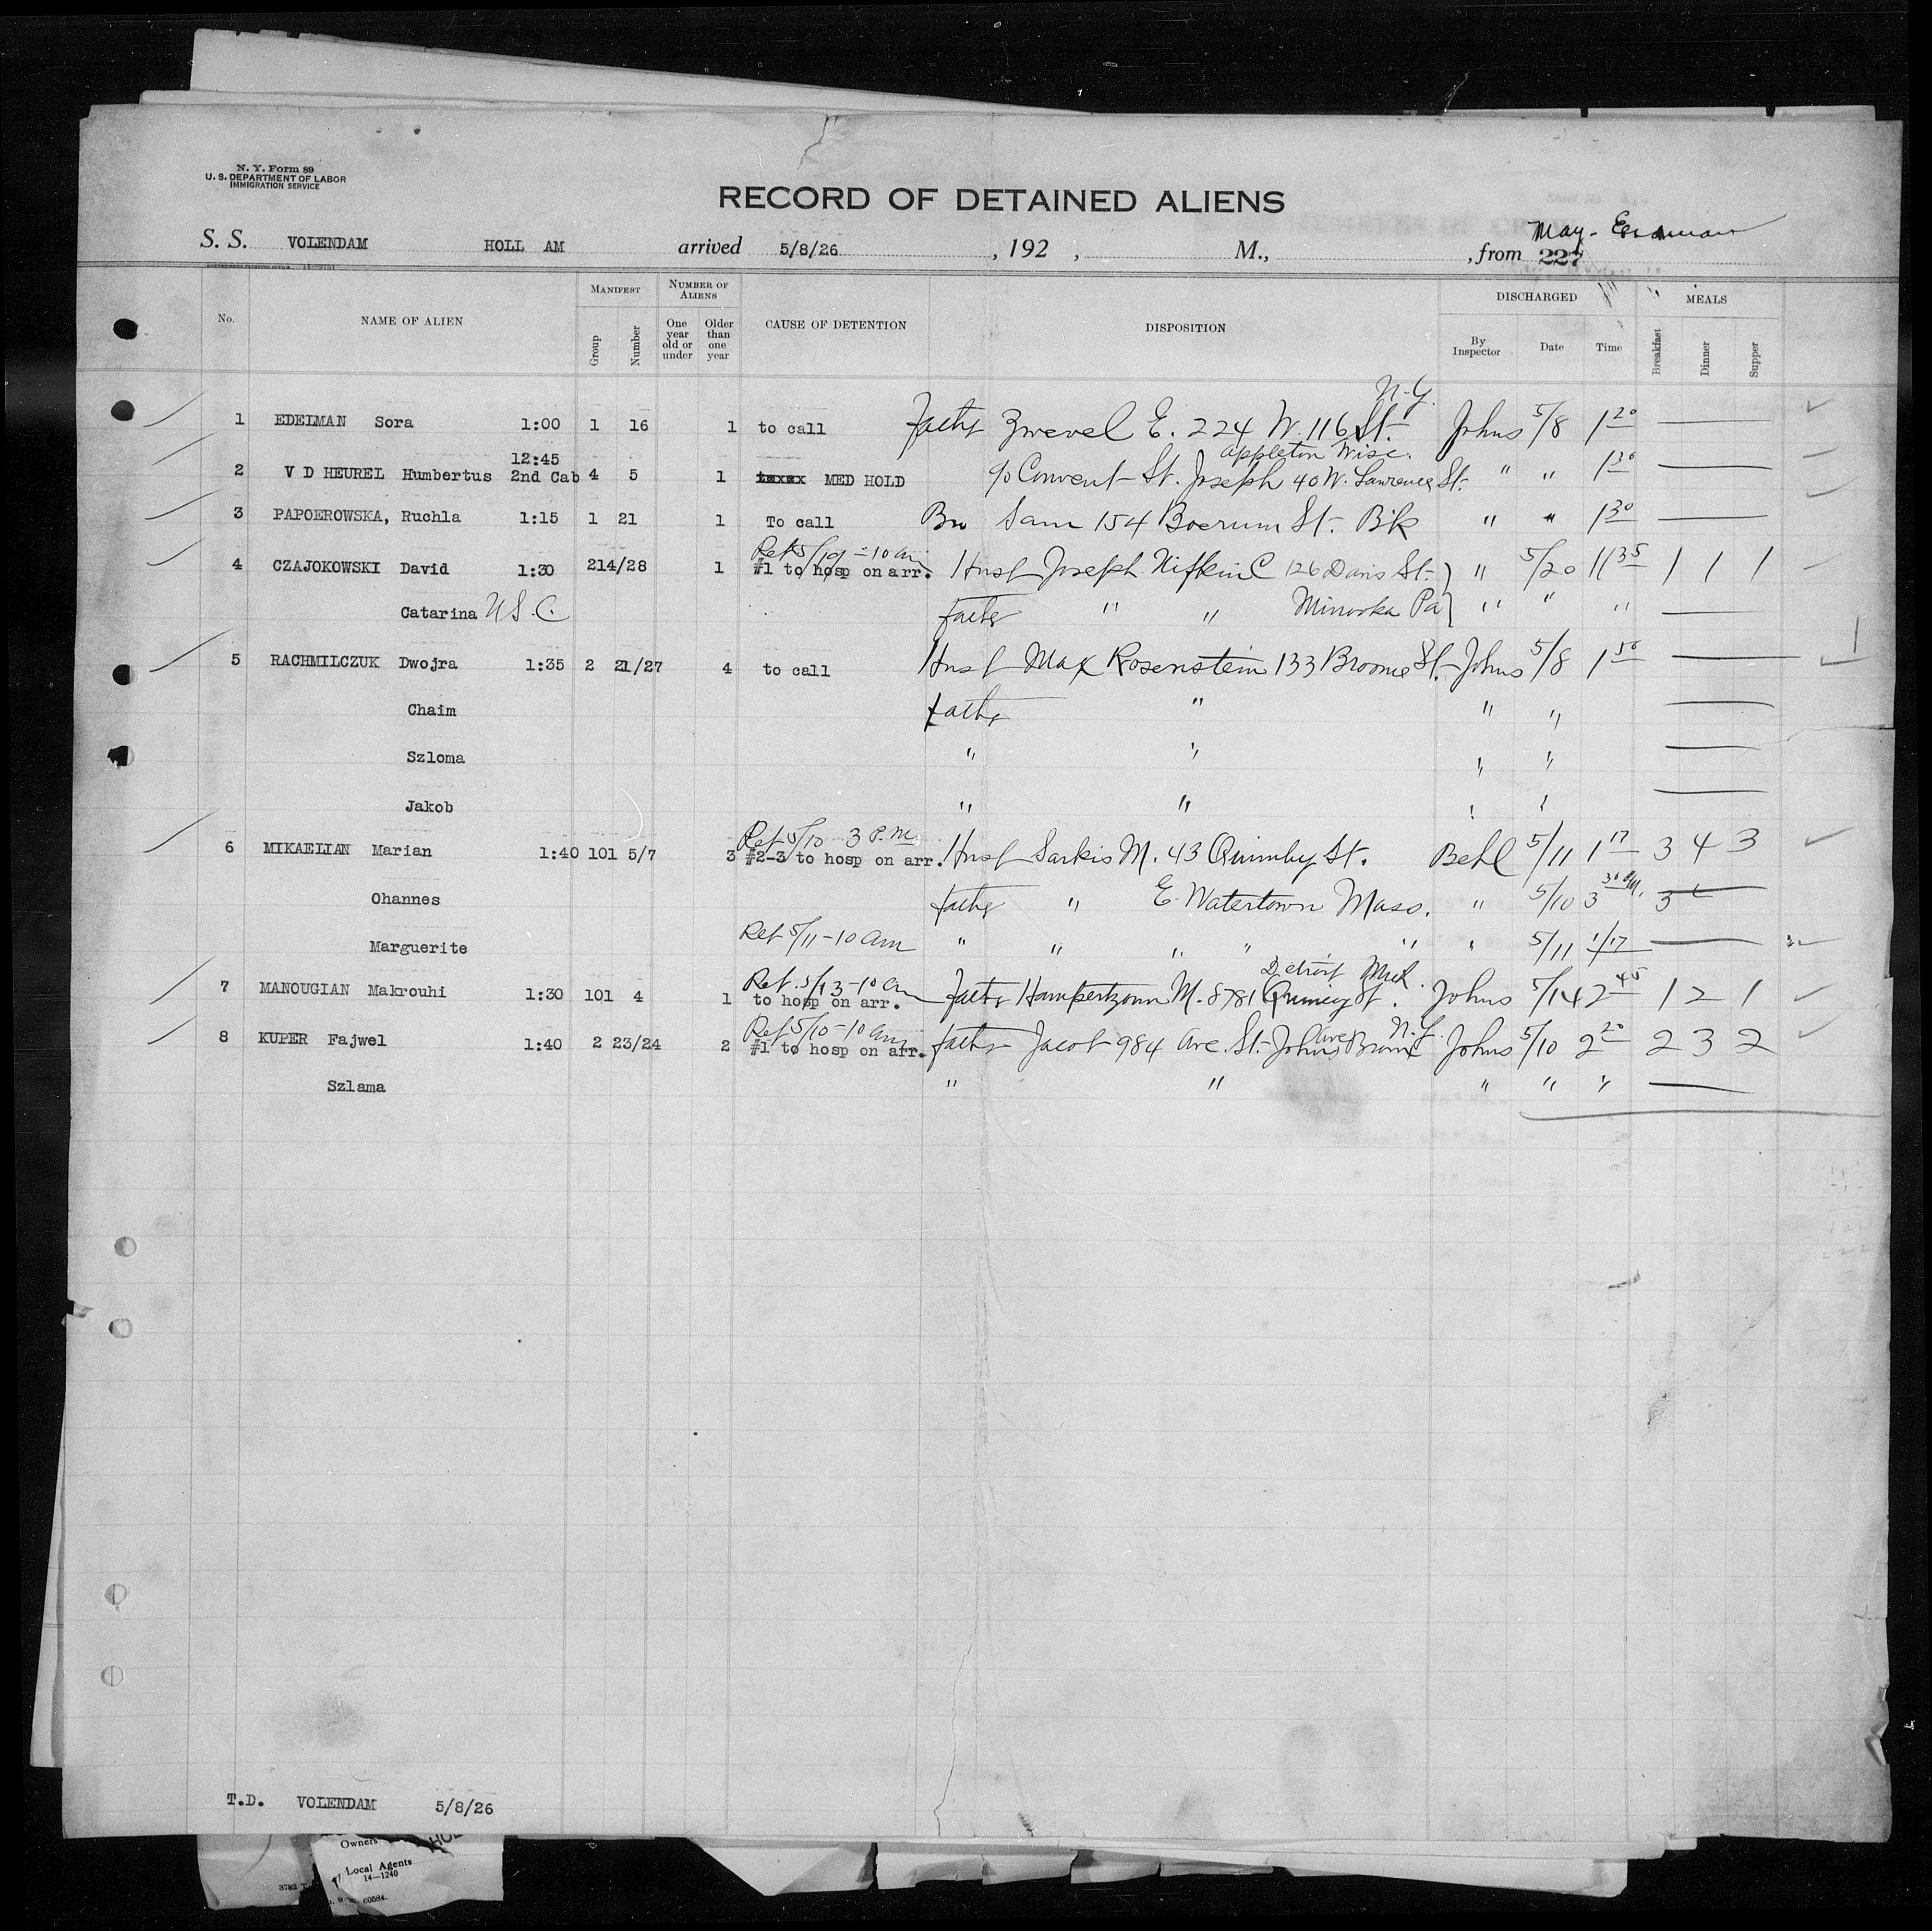 N. Y. Form 89
U. S. DEPARTMENT OF LABOR
IMMIGRATION SERVICE
RECORD OF DETAINED ALIENS
May-
S. S. VOLENDAM HOLL AM arrived 5/8/26, 192 , M., , from 227
No. NAME OF ALIEN MANIFEST Group Number NUMBER OF ALIENS One year old or under Older than one year CAUSE OF DETENTION DISPOSITION DISCHARGED By Inspector Date Time MEALS Breakfast Dinner Supper
N.Y.
1 EDELMAN Sora 1:00 1 16 1 to call Fathr E. 224 W. 116 St. Johns 5/8 1 20
12:45 Appleton Wisc.
2 V D HEUREL Humbertus 2nd Cab 4 5 1 MED HOLD c/o Convent St. Joseph 40 W. Lawrence St. " " 1 30
3 PAPOEROWSKA, Ruchla 1:15 1 21 1 To call Bro Sam 154 Boerum St. Bk " " 1 30
Ret 5/19 - 10 am
4 CZAJOKOWSKI David 1:30 214/28 1 #1 to hosp on arr. Husb Joseph 126 Davis St. " 5/20 11 35 1 1 1
Catarina U S. C. fathr " " Minooka Pa " " "
5 RACHMILCZUK Dwojra 1:35 2 21/27 4 to call Husb Max Rosenstein 133 Broome St. Johns 5/8 1 50
Chaim fathr " " "
Szloma " " " "
Jakob " " " "
Ret 5/10 3 P.M.
6 MIKAELIAN Marian 1:40 101 5/7 3 #2-3 to hosp on arr. Husb Sarkis M. 43 Quimby St. Behl 5/11 1 17 3 4 3
Ohannes fathr " E. Watertown Mass. " 5/10 3 30 PM.
Ret 5/11 - 10 am
Marguerite " " " " " " 5/11 1/17
Ret. 5/13 - 10 am Detroit Mich.
7 MANOUGIAN Makrouhi 1:30 101 4 1 to hosp on arr. Fathr M. 8781 Quincy St. Johns 5/14 2 45 1 2 1
Ret 5/10 - 10 am Ave N.Y.
8 KUPER Fajwel 1:40 2 23/24 2 #1 to hosp on arr. fathr Jacob 984 Ave. St. Johns Bronx Johns 5/10 2 20 2 3 2
Szlama " " " " "
T.D. VOLENDAM 5/8/26
Owners
Local Agents
14—1240
60584.